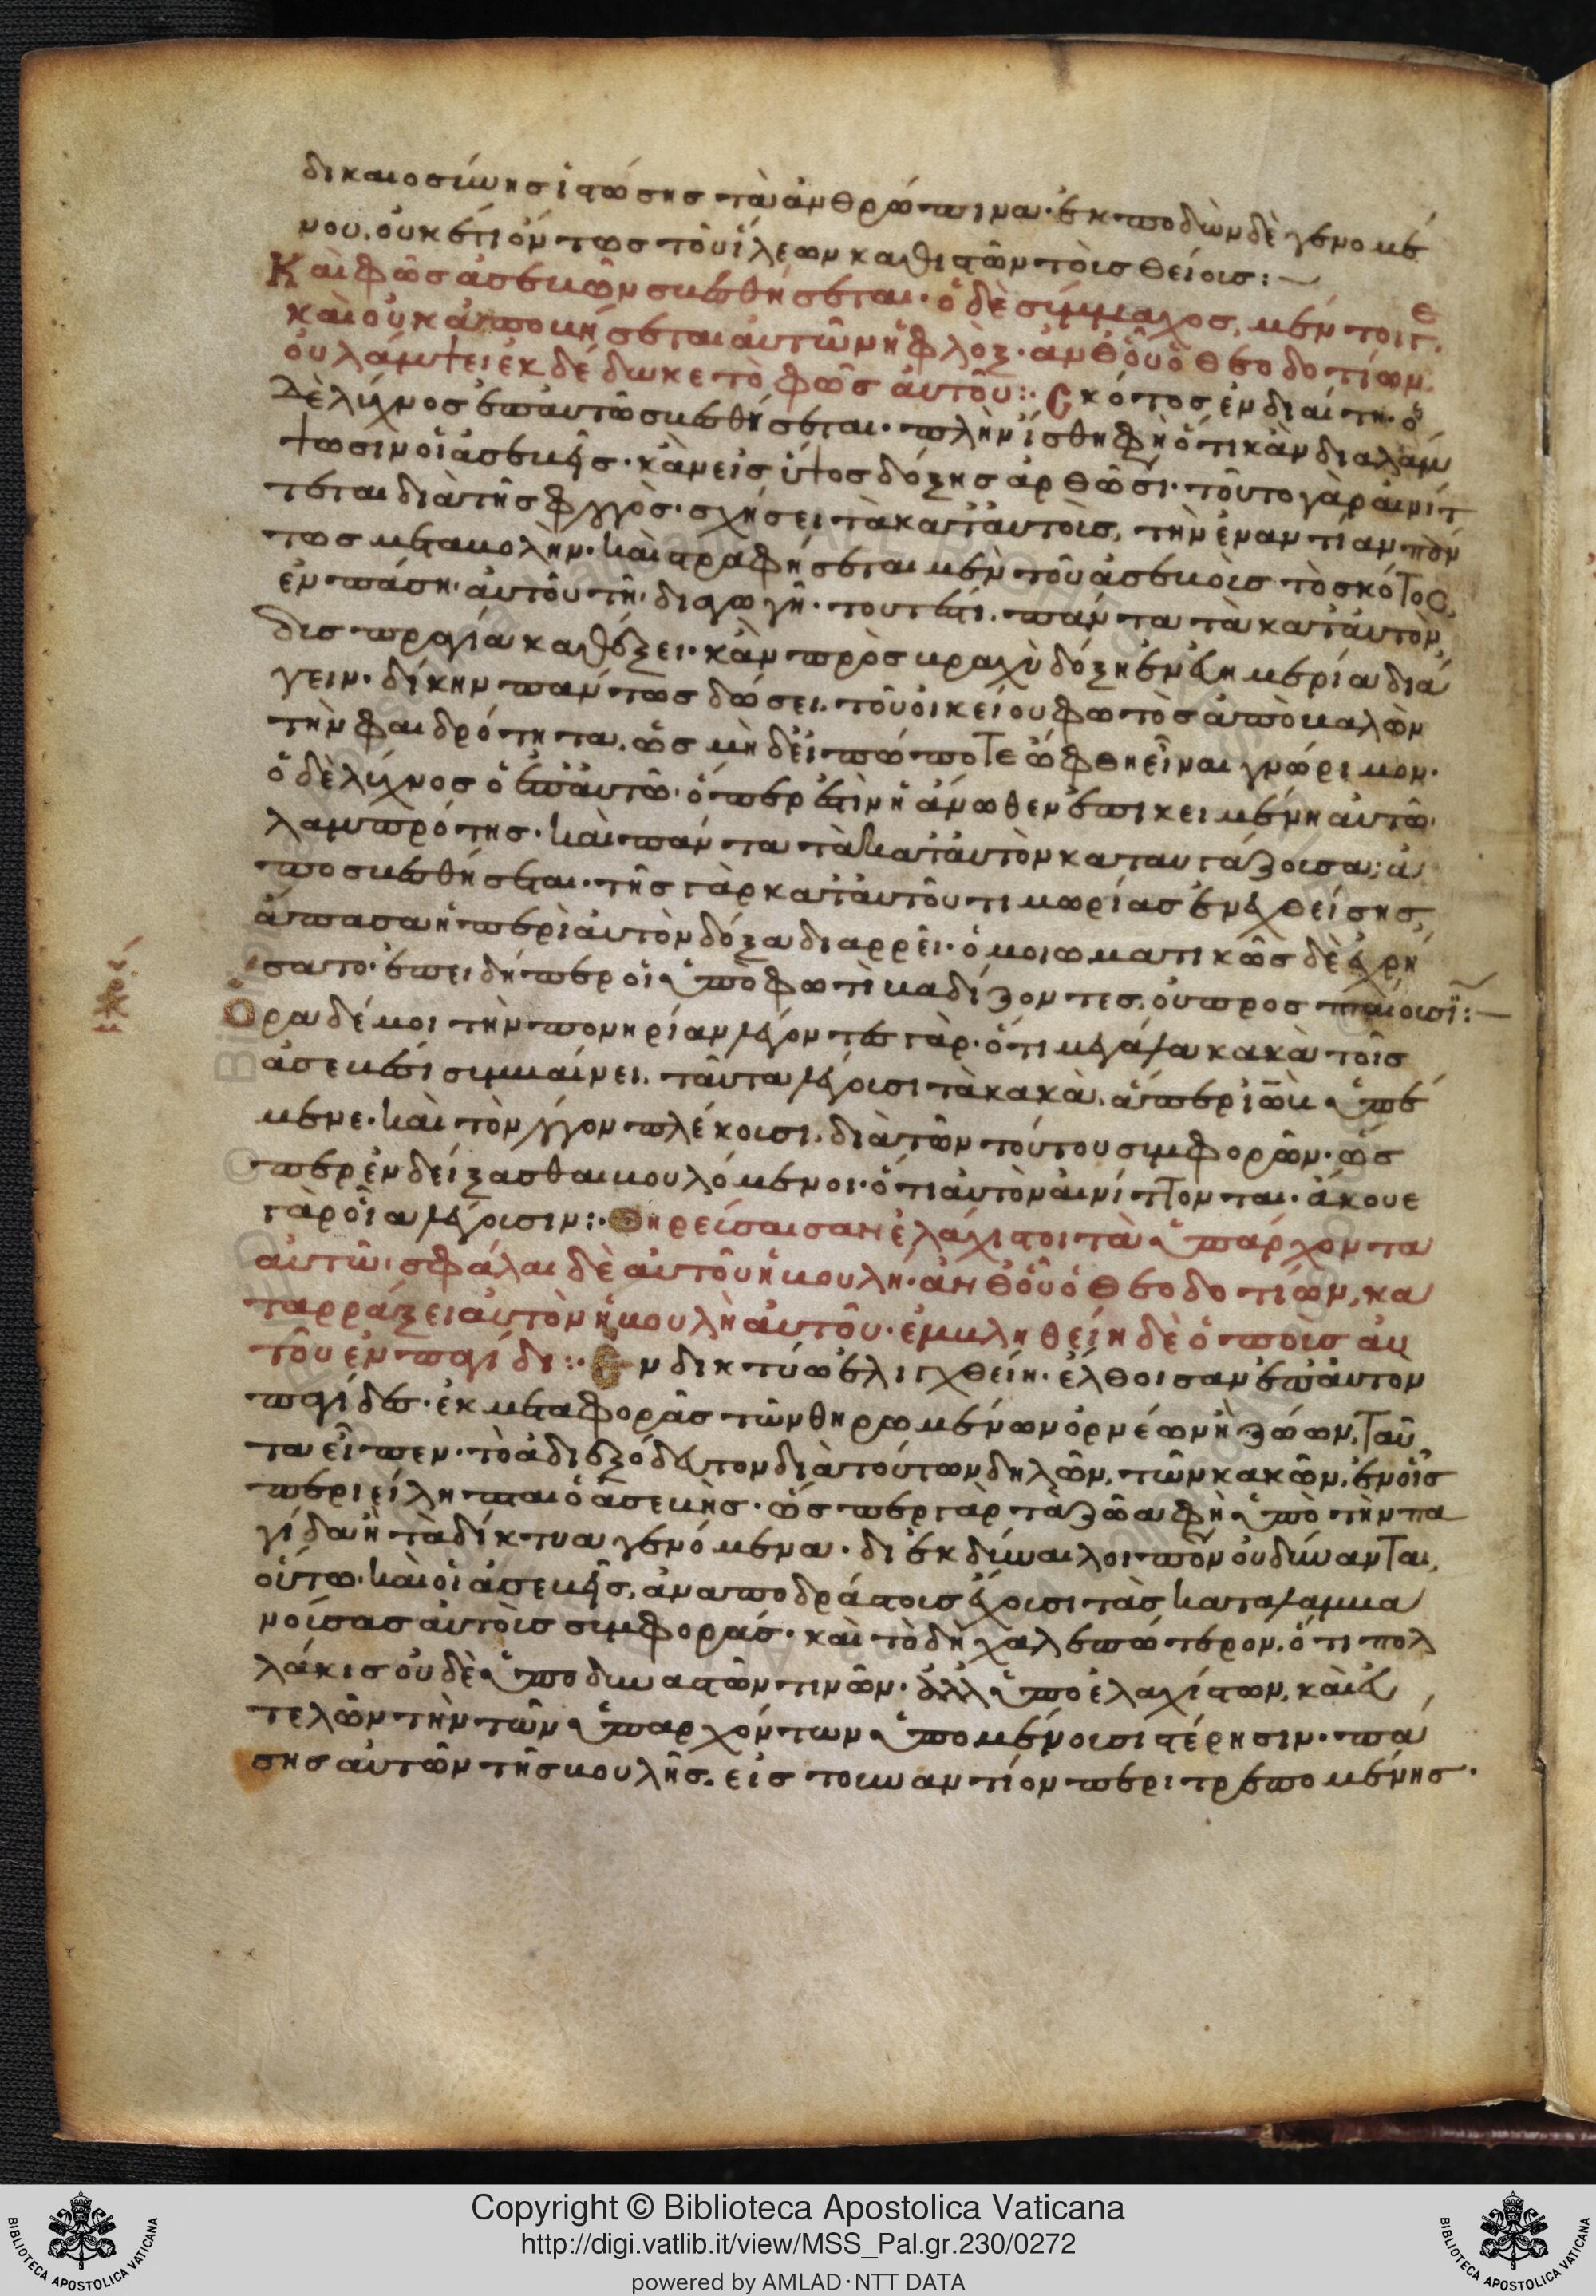 δικαιοσύνης ἱστώσης τὰ ἀνθρώπινα· ἐκποδὼν δὲ γενομέ
νου, οὐκ ἔστιν ὄντως τοῦ ἵλεων καθιστῶν τοῖς θείοις:—
Καὶ φῶς ἀσεβῶν σβεσθήσεται· ὁ δὲ σύμμαχος, μέντοι γε
καὶ οὐκ ἀποβήσεται αὐτῶν ἡ φλόξ· ἀνθ' οὗ ὁ θεοδοτίων
οὐ λάμψει ἐκδέδωκε τὸ φῶς αὐτοῦ:· Σκότος ἐν διαίτῃ· ὁ
δὲ λύχνος ἐπ' αὐτῷ σβεσθήσεται· πλὴν ἴσθι φη ὅτι κἂν διαλάμ
ψωσιν οἱ ἀσεβεῖς· κἂν εἰς ὕψος δόξης ἀρθῶσι· τοῦτο γὰρ αἰνίτ
τεται διὰ τῆς φλογὸς· σχήσει τὰ κατ' αὐτοὺς, τὴν ἐναντίαν πάν
τως μεταβολήν· καὶ στραφήσεται μὲν τοῦ ἀσεβοῦς τὸ σκότος,
ἐν πάσῃ αὐτοῦ τῇ διαγωγῇ· τουτέστι πάντα τὰ κατ' αὐτὸν,
δυσπραγία καθέξει· κἂν πρὸς βραχὺ δόξῃ ἐν εὐημερίᾳ διά
γειν· δίκην πάντως δώσει, τοῦ οἰκείου φωτὸς ἀποβαλὼν
τὴν φαιδρότητα, ὡς μηδὲ εἰ πώποτε ὤφθη εἶναι γνώριμον·
ὁ δὲ λύχνος ὁ ἐπ' αὐτῷ· ὅπερ ἐστὶν ἡ ἄνωθεν ἐπικειμένη αὐτῷ
λαμπρότης· καὶ πάντα τὰ κατ' αὐτὸν καταυγάζουσα, ἀ
ποσβεσθήσεται· τῆς γὰρ κατ' αὐτοῦ τιμωρίας ἐνεχθείσης,
ἅπασα ἡ περὶ αὐτὸν δόξα διαρρεῖ· ὁμοιωματικῶς δὲ ἐχρή
σατο· ἐπειδήπερ οἱ ὑπὸ φωτὶ βαδίζοντες, οὐ προσπταίουσι:—
Ὅρα δέ μοι τὴν πονηρίαν λέγοντες γὰρ· ὅτι μεγάλα κακὰ τοῖς
ἀσεβέσι συμβαίνει, ταῦτα λέγουσι τὰ κακὰ, ἅπερ ἰὼβ ὑπέ
μενε· καὶ τὸν λόγον πλέκουσι, διὰ τῶν τούτου συμφορῶν· ὥσ
περ ἐνδείξασθαι βουλόμενοι· ὅτι αὐτὸν αἰνίττονται· ἄκουε
γὰρ οἷα λέγουσιν:· Θηρεύσαισαν ἐλάχιστοι τὰ ὑπάρχοντα
αὐτῷ· σφάλαι δὲ αὐτοῦ ἡ βουλή· ἀνθ' οὗ ὁ θεοδοτίων, κα
ταρράξει αὐτὸν ἡ βουλὴ αὐτοῦ· ἐμβληθείη δὲ ὁ ποῦς αὐ
τοῦ ἐν παγίδι:· Ἐν δικτύῳ ἑλιχθείη· ἔλθοισαν ἐπ' αὐτὸν
παγίδες· ἐκ μεταφορᾶς τῶν θηρωμένων ὀρνέων ἢ ζώων, ταῦ
τα εἶπεν· τὸ ἀδιεξόδευτον διὰ τούτων δηλῶν, τῶν κακῶν, ἐν οἷς
περιείληπται ὁ ἀσεβής· ὥσπερ γὰρ τὰ ζῶα φη ὑπὸ τὴν πα
γίδα ἢ τὰ δίκτυα γενόμενα· διεκδῦναι λοιπὸν οὐ δύνανται,
οὕτω καὶ οἱ ἀσεβεῖς, ἀναποδράστους ἔχουσι τὰς καταλαμβα
νούσας αὐτοὺς συμφοράς· καὶ τὸ δὴ χαλεπώτερον, ὅτι πολ
λάκις οὐδὲ ὑπὸ δυνατῶν τινῶν· ἀλλ' ὑπὸ ἐλαχίστων, καὶ εὐ
τελῶν τὴν τῶν ὑπαρχόντων ὑπομένουσι στέρησιν· πά
σης αὐτῶν τῆς βουλῆς, εἰς τοὐναντίον περιτρεπομένης·
Copyright © Biblioteca Apostolica Vaticana
http://digi.vatlib.it/view/MSS_Pal.gr.230/0272
powered by AMLAD·NTT DATA
BIBLIOTECA APOSTOLICA VATICANA
BIBLIOTECA APOSTOLICA VATICANA